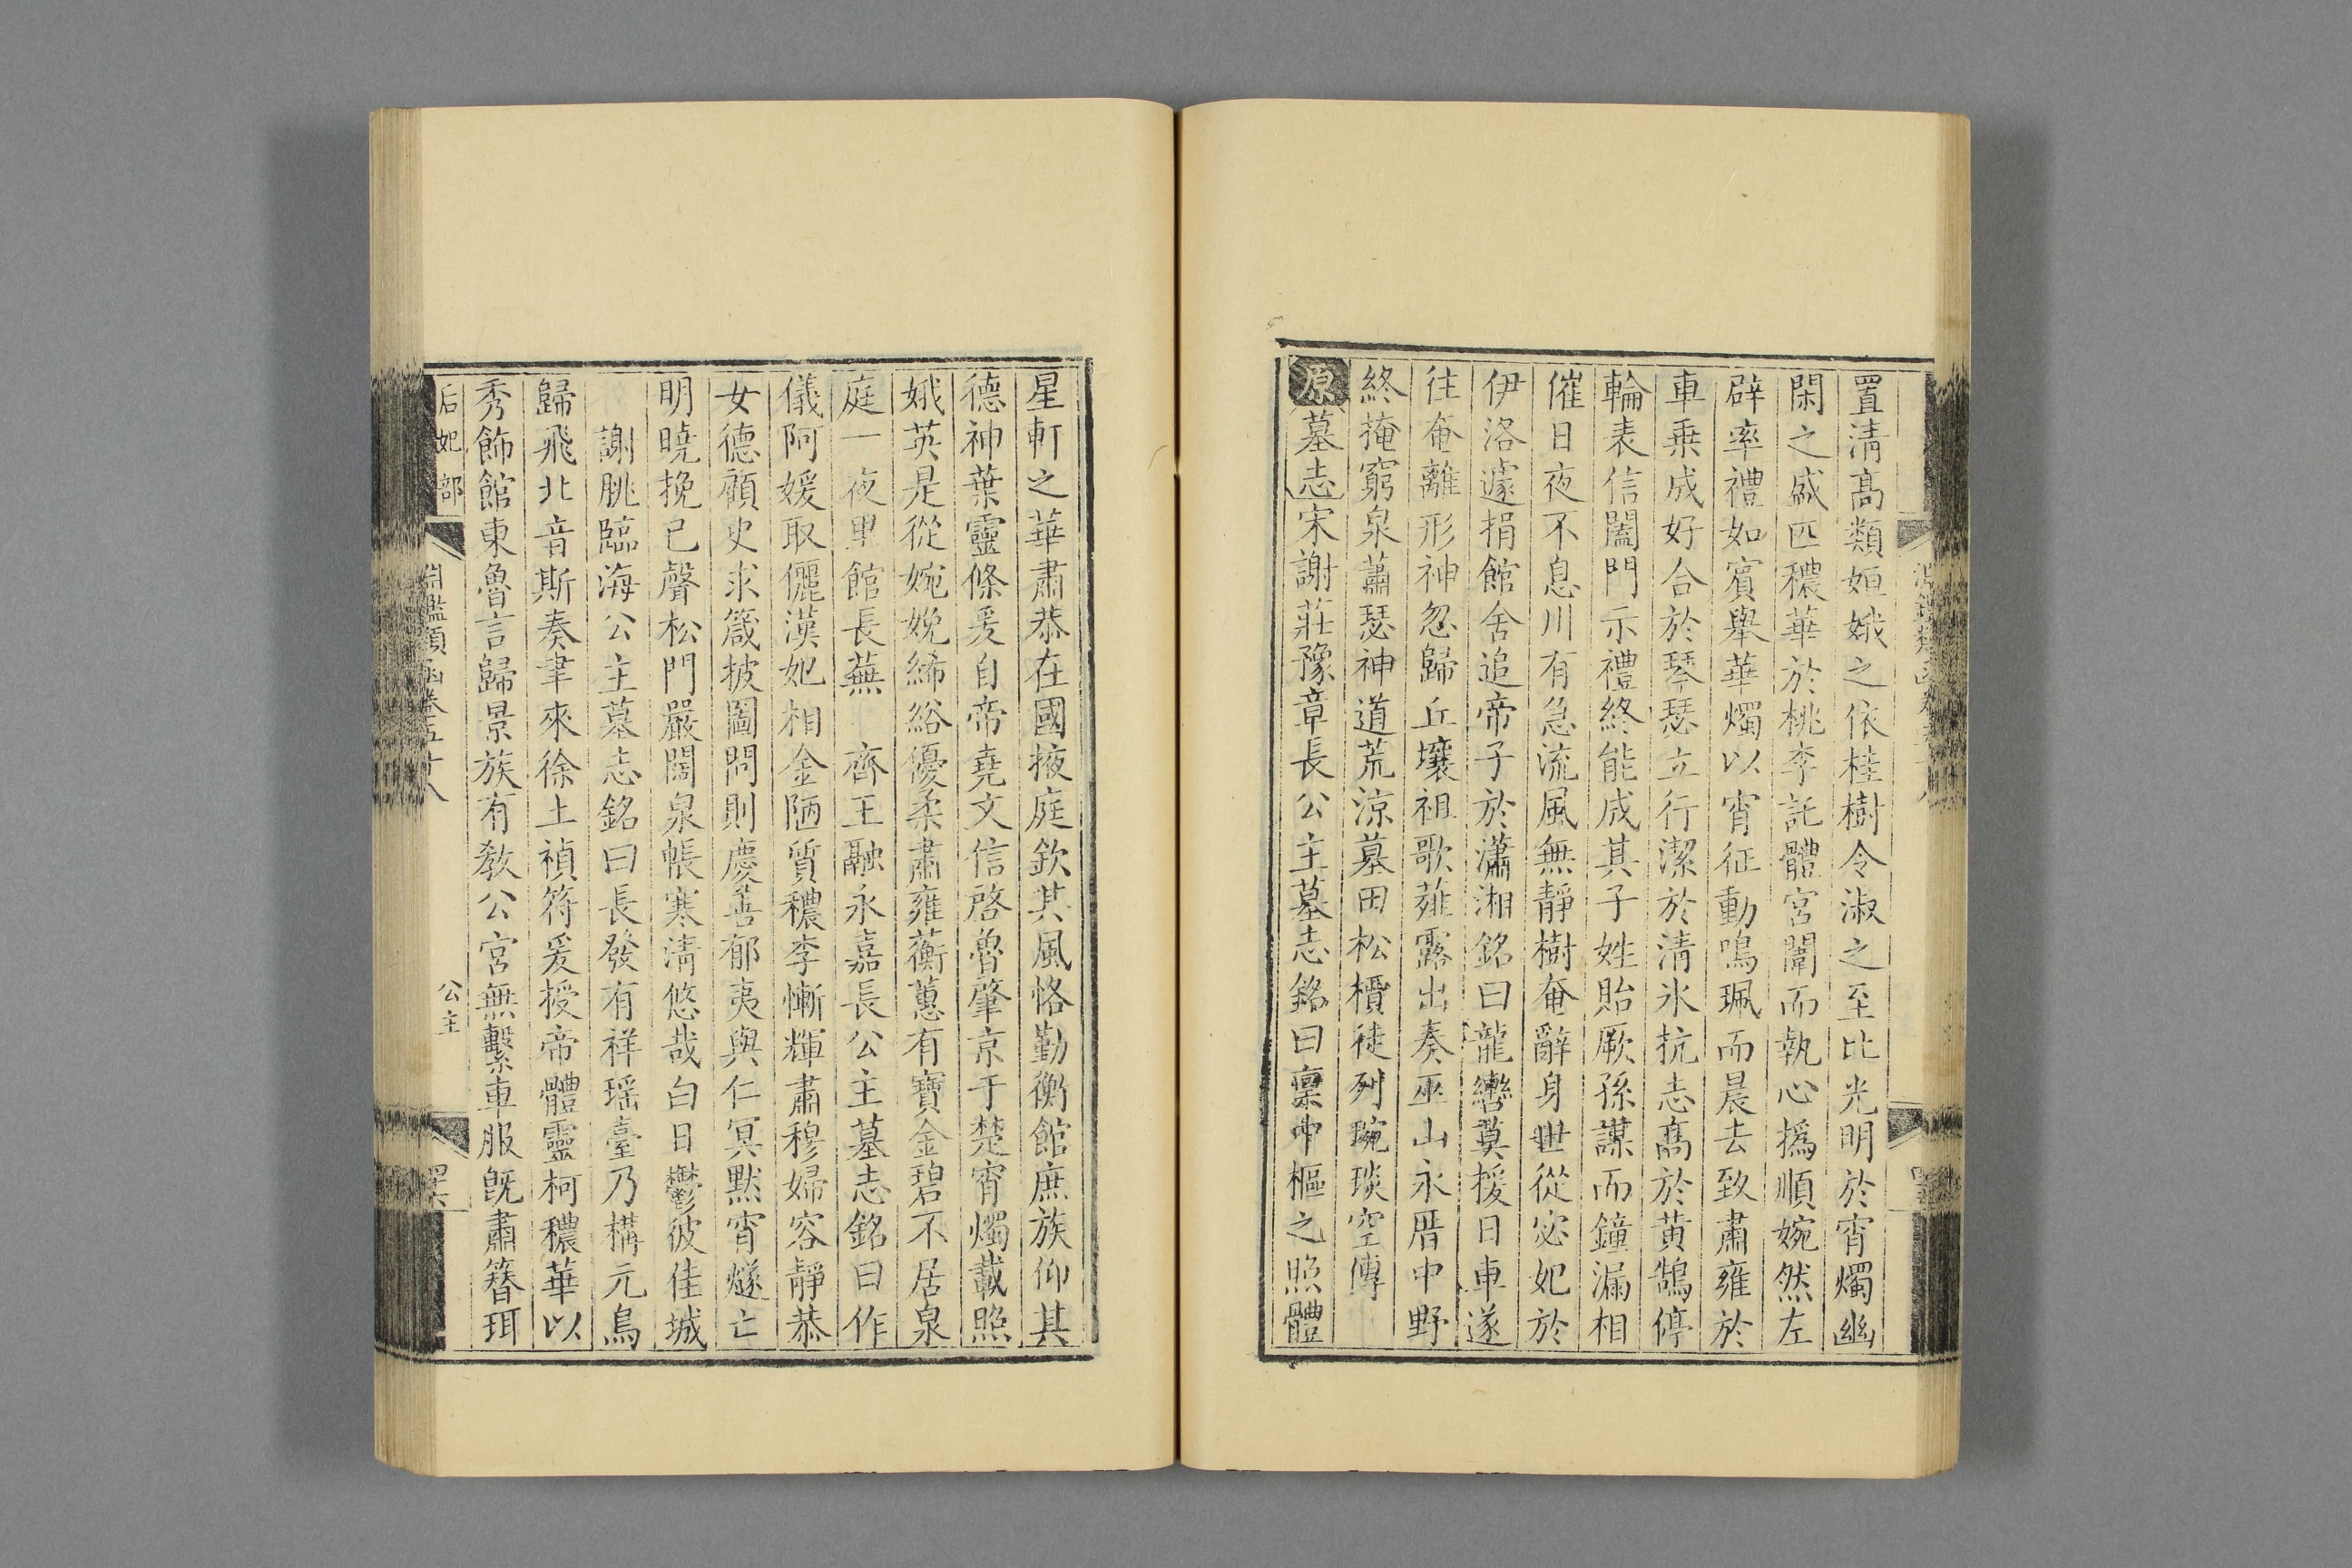 置淸髙類姮娥之依桂樹令淑之至比光明於宵燭幽
閑之盛匹穠華於桃李託體宮闈而執心撝順婉然左
辟率禮如賓舉華燭以宵征動鳴珮而晨去致肅雍於
車乗成好合於琴瑟立行潔於淸氷抗志髙於黄鵠停
輪表信闔門示禮終能成其子姓貽厥孫謀而鐘漏相
催日夜不息川有急流風無靜樹奄辭身世從宓妃於
伊洛遽捐館舍追帝子於瀟湘銘曰龍轡莫援日車遂
往奄離形神忽歸丘壤祖歌薤露出奏巫山永厝中野
終掩窮泉蕭瑟神道荒凉墓田松檟徒列琬琰空傳
原墓志宋謝莊豫章長公主墓志銘曰禀中樞之照體
星軒之華肅恭在國掖庭欽其風恪勤衡館庶族仰其
德神葉靈條爰自帝堯文信啓魯肇京于楚宵燭載照
娥英是從婉娩絺綌優柔肅雍蘅蕙有寶金碧不居泉
庭一夜里館長蕪　齊王融永嘉長公主墓志銘曰作
儀阿媛取儷漢妃相金陋質穠李慚輝肅穆婦容靜恭
女德顧史求箴披圖問則慶善郁夷與仁冥默宵燧亡
明曉挽已聲松門嚴闊泉帳寒淸悠哉白日鬱彼佳城
謝朓臨海公主墓志銘曰長發有祥瑶臺乃構元鳥
歸飛北音斯奏聿來徐土禎符爰授帝體靈柯穠華以
秀飾館東魯言歸景族有敎公宮無繫車服旣肅簪珥
后妃部
淵鑑類函卷五十八
公主